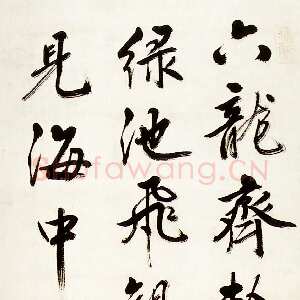 六龍齊
緑池飛
見海中
Shufawang.CN